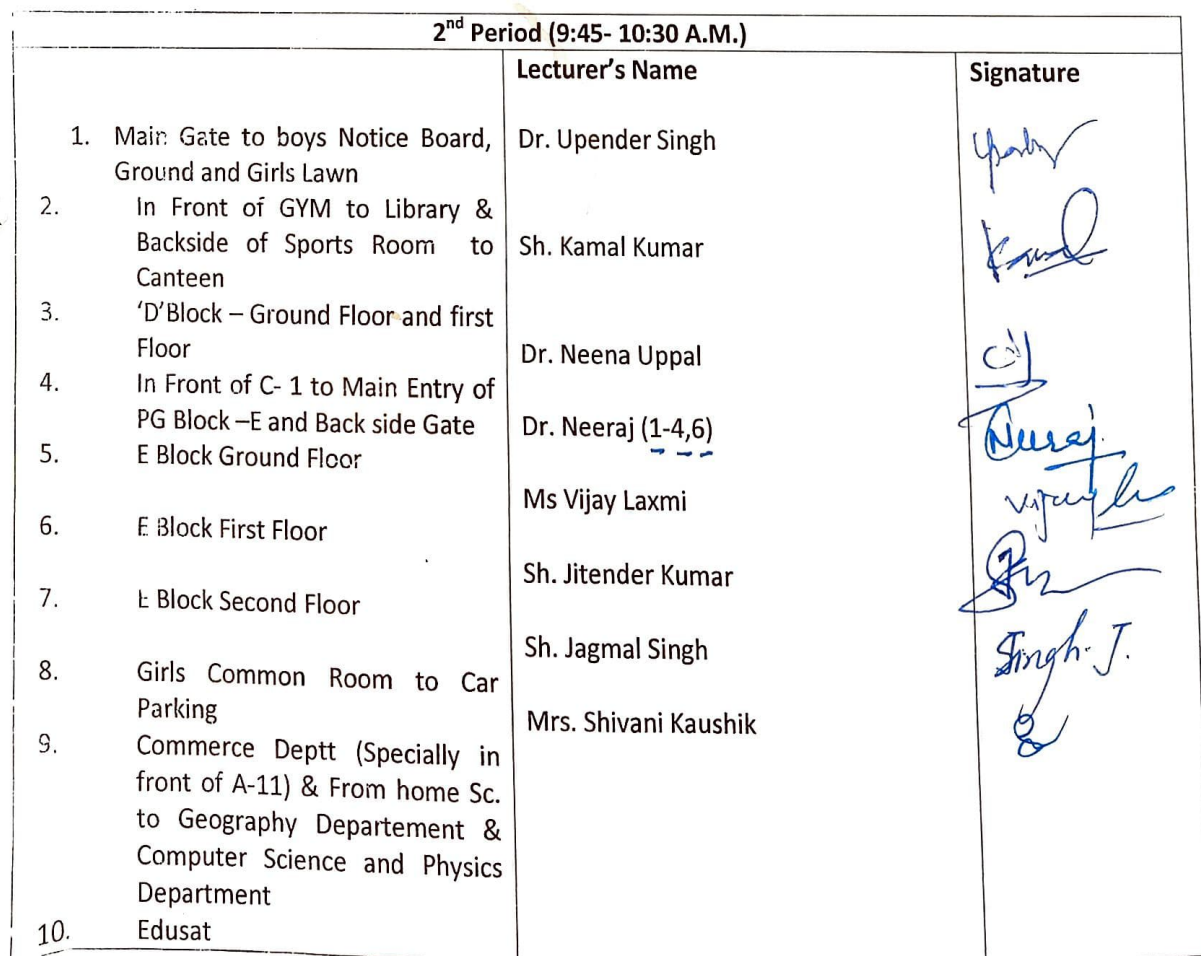 2nd Period (9:45- 10:30 A.M.)
Lecturer's Name
Signature
1. Main Gate to boys Notice Board,
Ground and Girls Lawn
Dr. Upender Singh
2. In Front of GYM to Library &
Backside of Sports Room to
Canteen
Sh. Kamal Kumar
Kamal
3. 'D'Block – Ground Floor and first
Floor
Dr. Neena Uppal
4. In Front of C- 1 to Main Entry of
PG Block –E and Back side Gate
Dr. Neeraj (1-4,6)
Neeraj
5. E Block Ground Floor
Ms Vijay Laxmi
6. E Block First Floor
Sh. Jitender Kumar
7. E Block Second Floor
Sh. Jagmal Singh
Singh. J.
8. Girls Common Room to Car
Parking
Mrs. Shivani Kaushik
9. Commerce Deptt (Specially in
front of A-11) & From home Sc.
to Geography Departement &
Computer Science and Physics
Department
10. Edusat